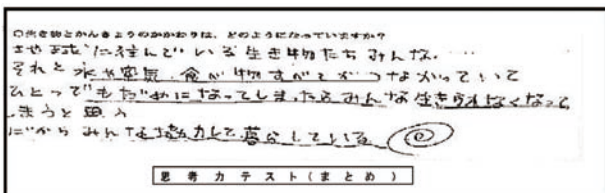 ○生き物とかんきょうのかかわりは、どのようになっていますか？
地球に住んでいる生き物たちみんな‥‥
それと水や空気、食べ物すべてがつながっていて
ひとつでもだめになってしまったらみんな生きられなくなって
しまうと思う
だからみんな協力して暮らしている
思考力テスト(まとめ)